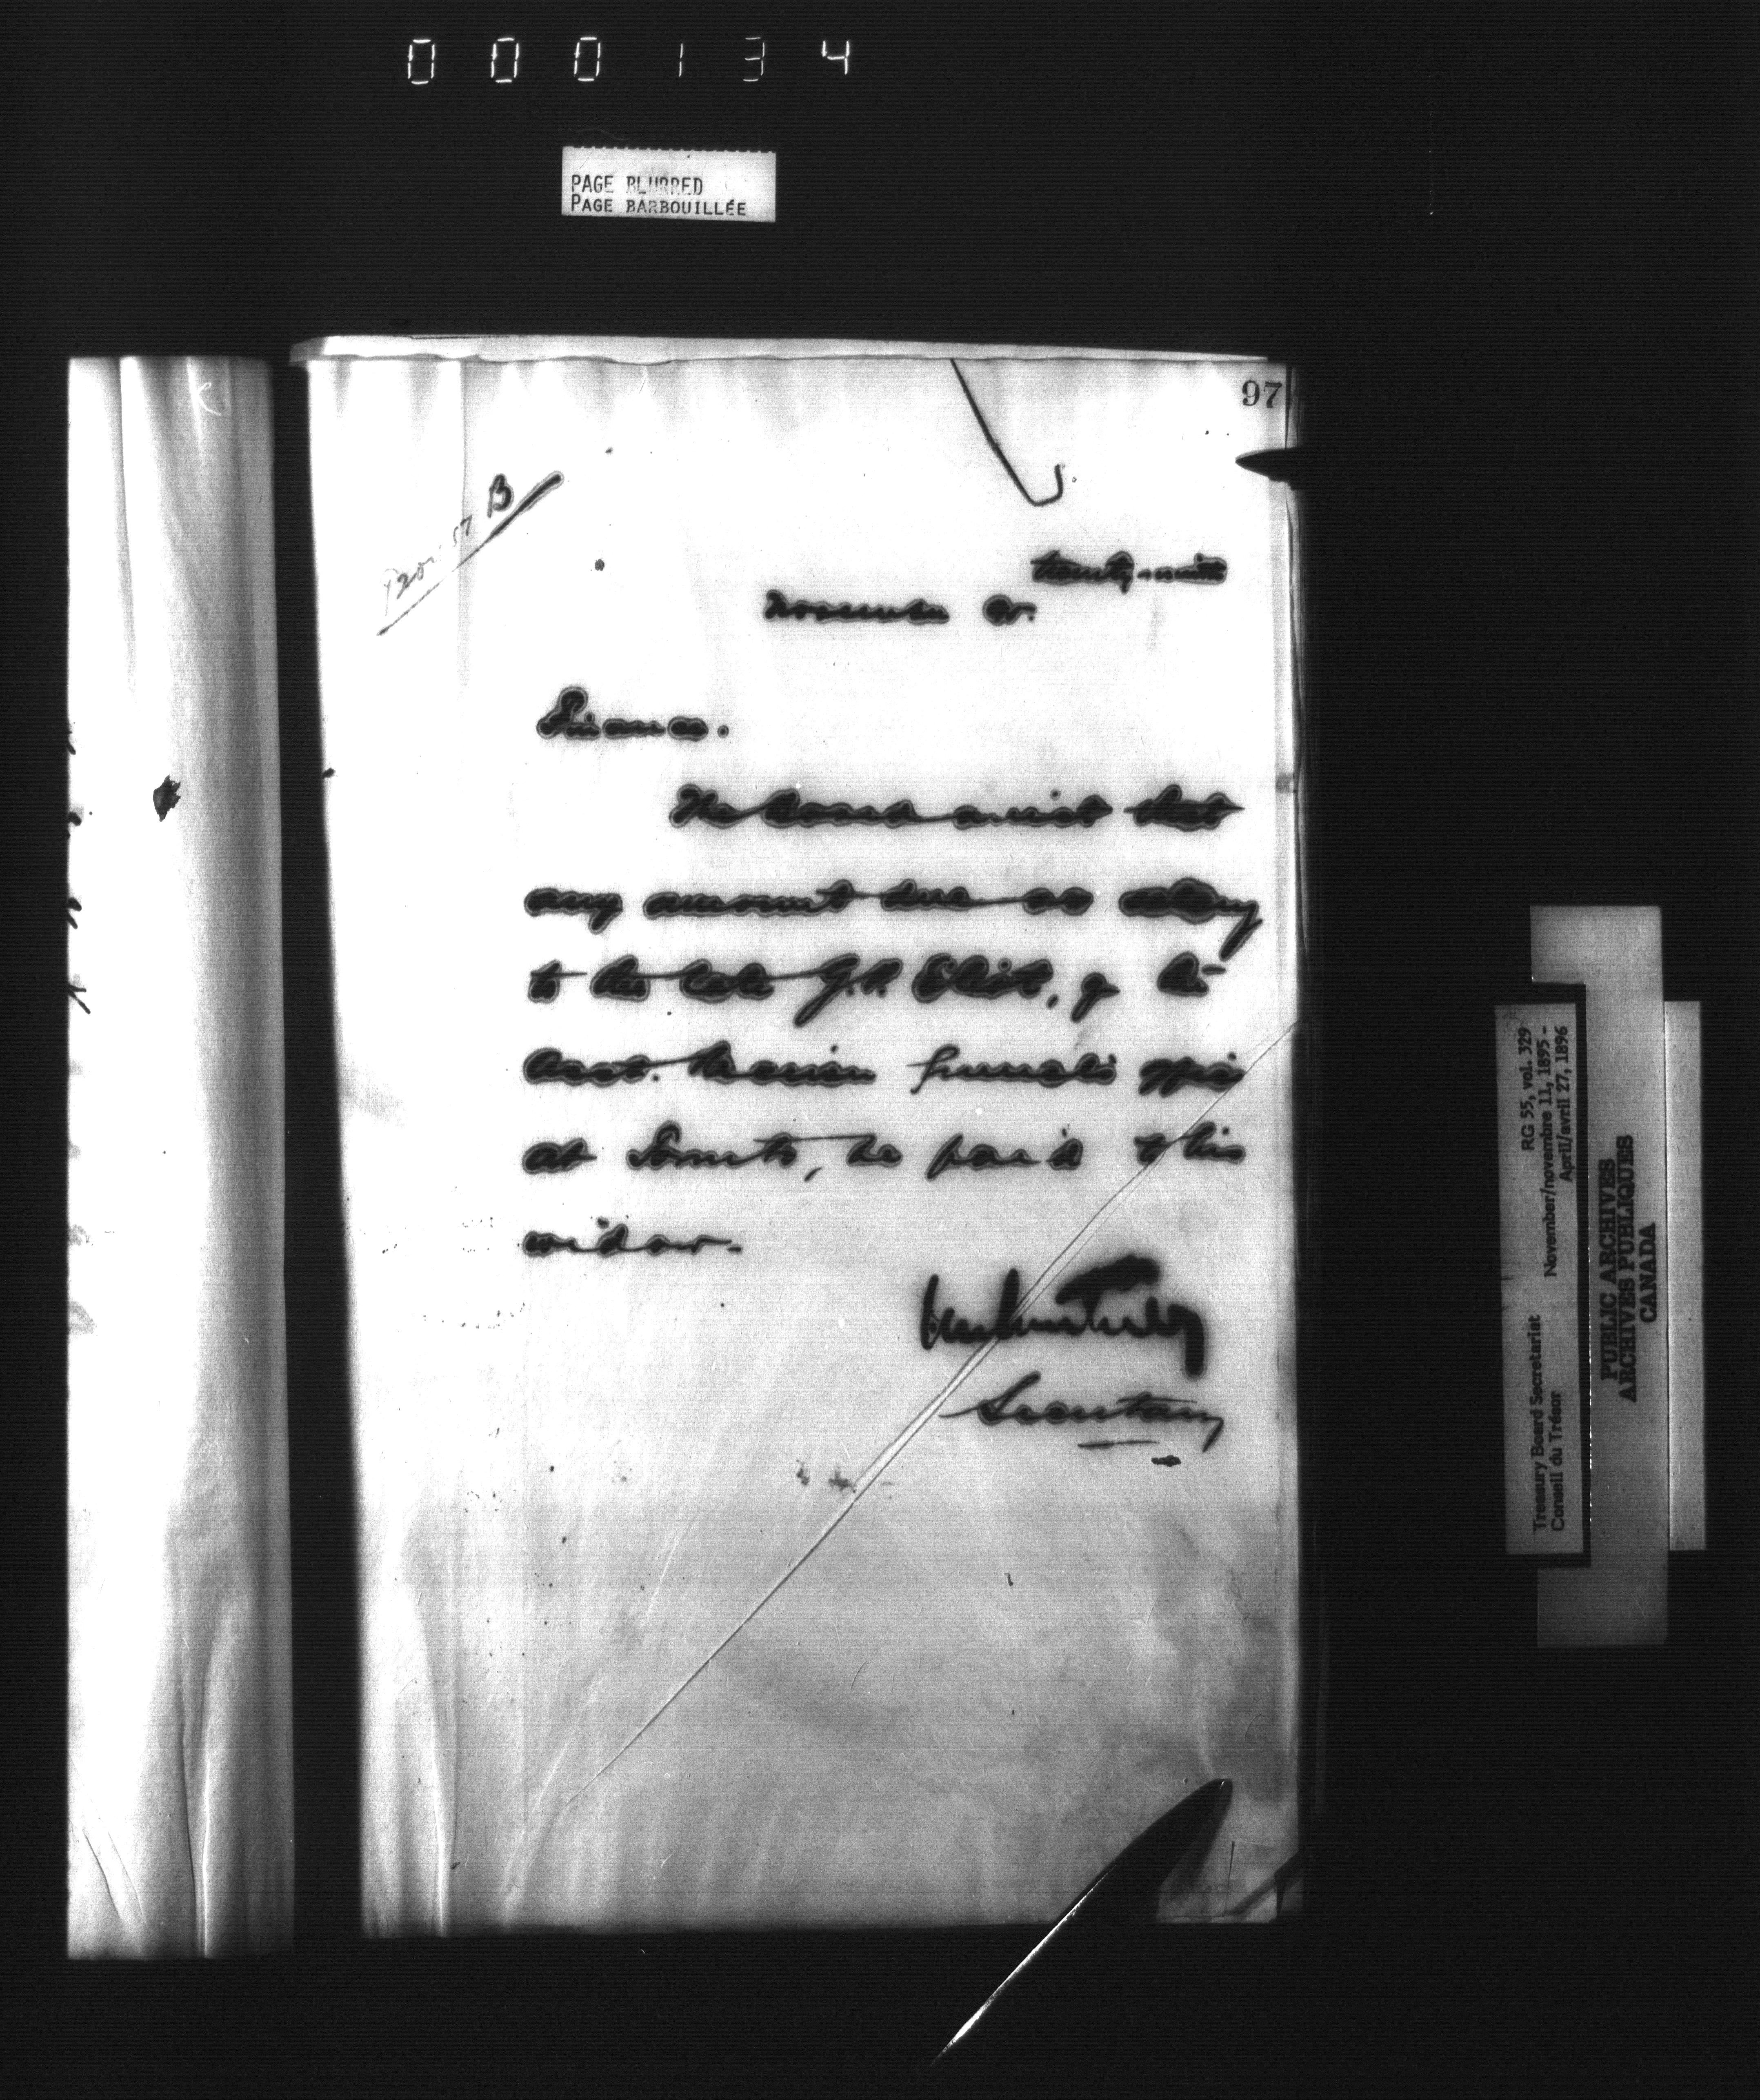 000134
PAGE BLURRED
PAGE BARBOUILLÉE
97
B
twenty-ninth
November 95.
Finance.
The Board submit that
any amount due as salary
to the late G. P. Eliot, of the
Asst. Receiver General's Office
at Toronto, be paid to his
widow.
Secretary
RG 55, vol. 329
November/novembre 11, 1895 -
April/avril 27, 1896
Treasury Board Secretariat
Conseil du Trésor
PUBLIC ARCHIVES
ARCHIVES PUBLIQUES
CANADA